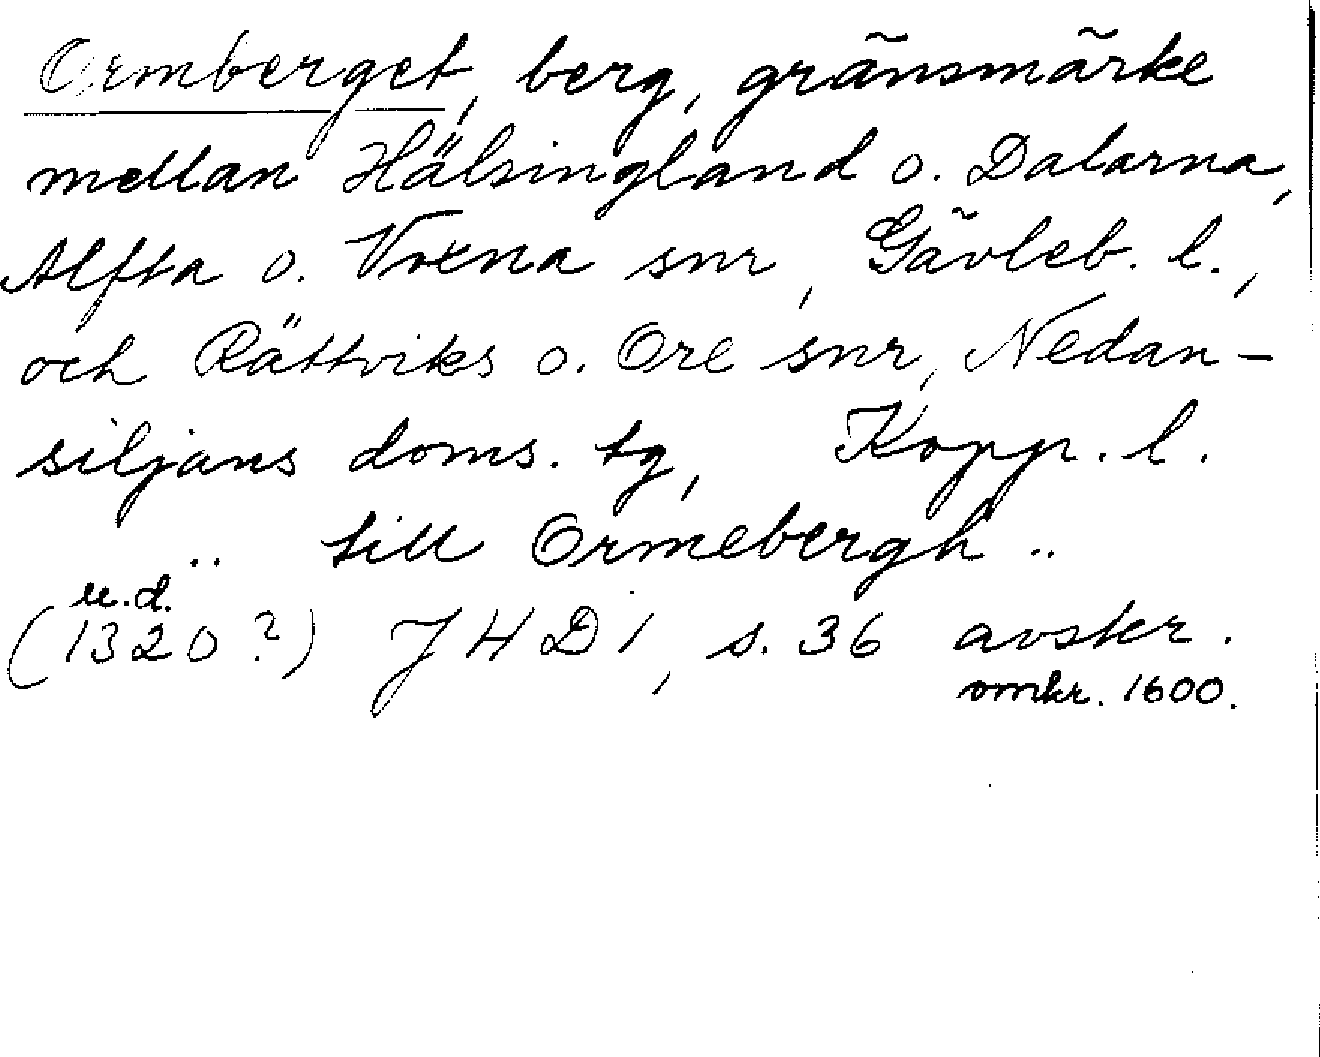 Ormberget, berg, gränsmärke
mellan Hälsingland o. Dalarna,
Alfta o. Voxna snr, Gävleb. l.,
och Rättviks o. Ore snr, Nedan-
siljans doms. tg, Kopp. l.
.. till Ormebergh ..
u.d.
(1320?) JHD 1, s. 36 avskr.
omkr. 1600.